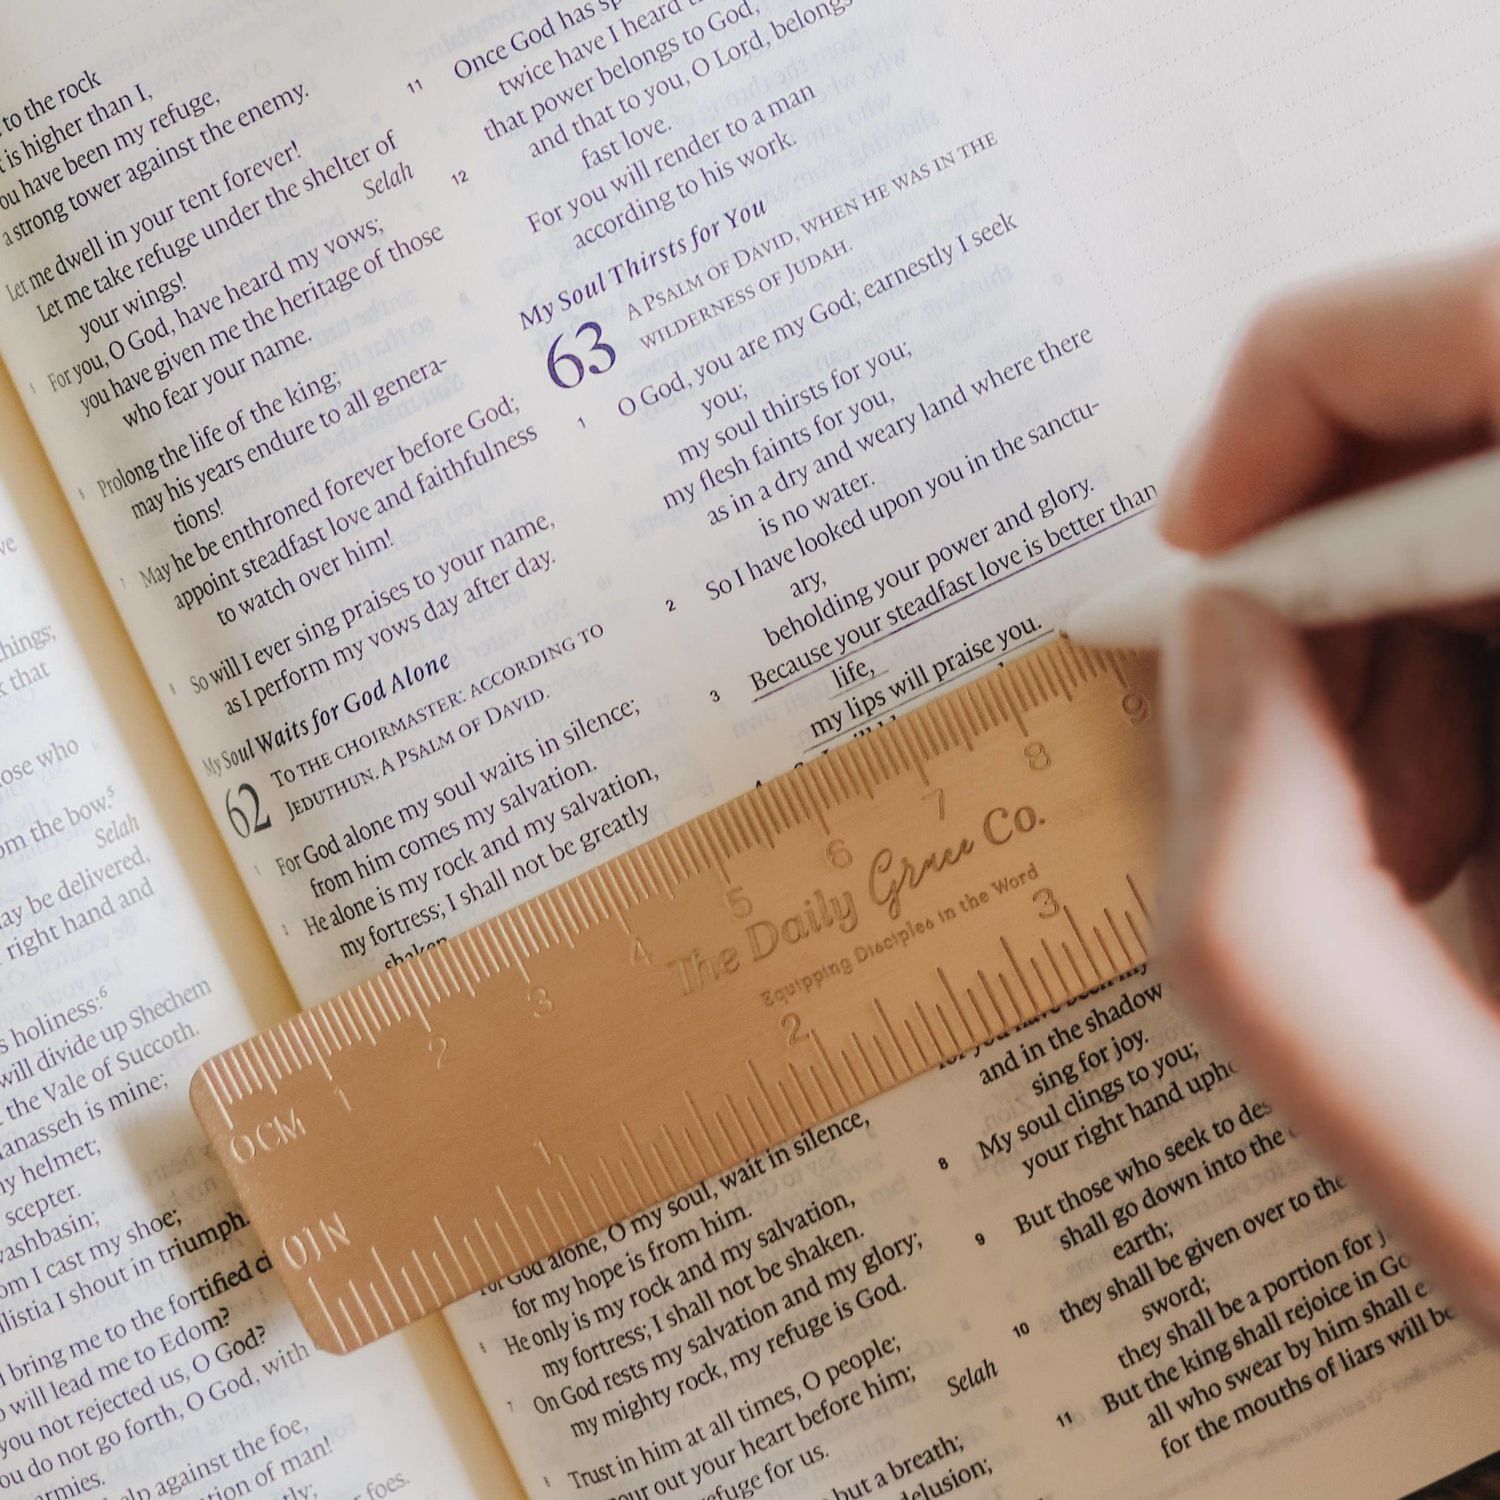 ve
hings;
k that
ose who
om the bow.⁵
Selah
ay be delivered,
right hand and
s holiness:⁶
will divide up Shechem
the Vale of Succoth.
anasseh is mine;
y helmet;
scepter.
washbasin;
om I cast my shoe;
ilistia I shout in triumph.
bring me to the fortified ci
will lead me to Edom?
you not rejected us, O God?
ou do not go forth, O God, with
armies.
help against the foe,
tion of man!
tly;
foes.
to the rock
t is higher than I,
ou have been my refuge,
a strong tower against the enemy.
Let me dwell in your tent forever!
Let me take refuge under the shelter of
your wings! Selah
5 For you, O God, have heard my vows;
you have given me the heritage of those
who fear your name.
6 Prolong the life of the king;
may his years endure to all genera-
tions!
7 May he be enthroned forever before God;
appoint steadfast love and faithfulness
to watch over him!
8 So will I ever sing praises to your name,
as I perform my vows day after day.
My Soul Waits for God Alone
62 TO THE CHOIRMASTER: ACCORDING TO
JEDUTHUN. A PSALM OF DAVID.
1 For God alone my soul waits in silence;
from him comes my salvation.
2 He alone is my rock and my salvation,
my fortress; I shall not be greatly
shaken.
For God alone, O my soul, wait in silence,
for my hope is from him.
6 He only is my rock and my salvation,
my fortress; I shall not be shaken.
7 On God rests my salvation and my glory;
my mighty rock, my refuge is God.
8 Trust in him at all times, O people;
pour out your heart before him;
refuge for us. Selah
but a breath;
delusion;
11 Once God has sp
twice have I heard t
that power belongs to God,
12 and that to you, O Lord, belongs
fast love.
For you will render to a man
according to his work.
My Soul Thirsts for You
63 A PSALM OF DAVID, WHEN HE WAS IN THE
WILDERNESS OF JUDAH.
1 O God, you are my God; earnestly I seek
you;
my soul thirsts for you;
my flesh faints for you,
as in a dry and weary land where there
is no water.
2 So I have looked upon you in the sanctu-
ary,
beholding your power and glory.
3 Because your steadfast love is better than
life,
my lips will praise you.
for you have been my
and in the shadow
sing for joy.
8 My soul clings to you;
your right hand upho
9 But those who seek to des
shall go down into the
earth;
10 they shall be given over to the
sword;
they shall be a portion for j
11 But the king shall rejoice in Go
all who swear by him shall e
for the mouths of liars will be
0 CM 1 2 3 4 5 6 7 8 9
The Daily Grace Co.
Equipping Disciples in the Word
0 IN 1 2 3